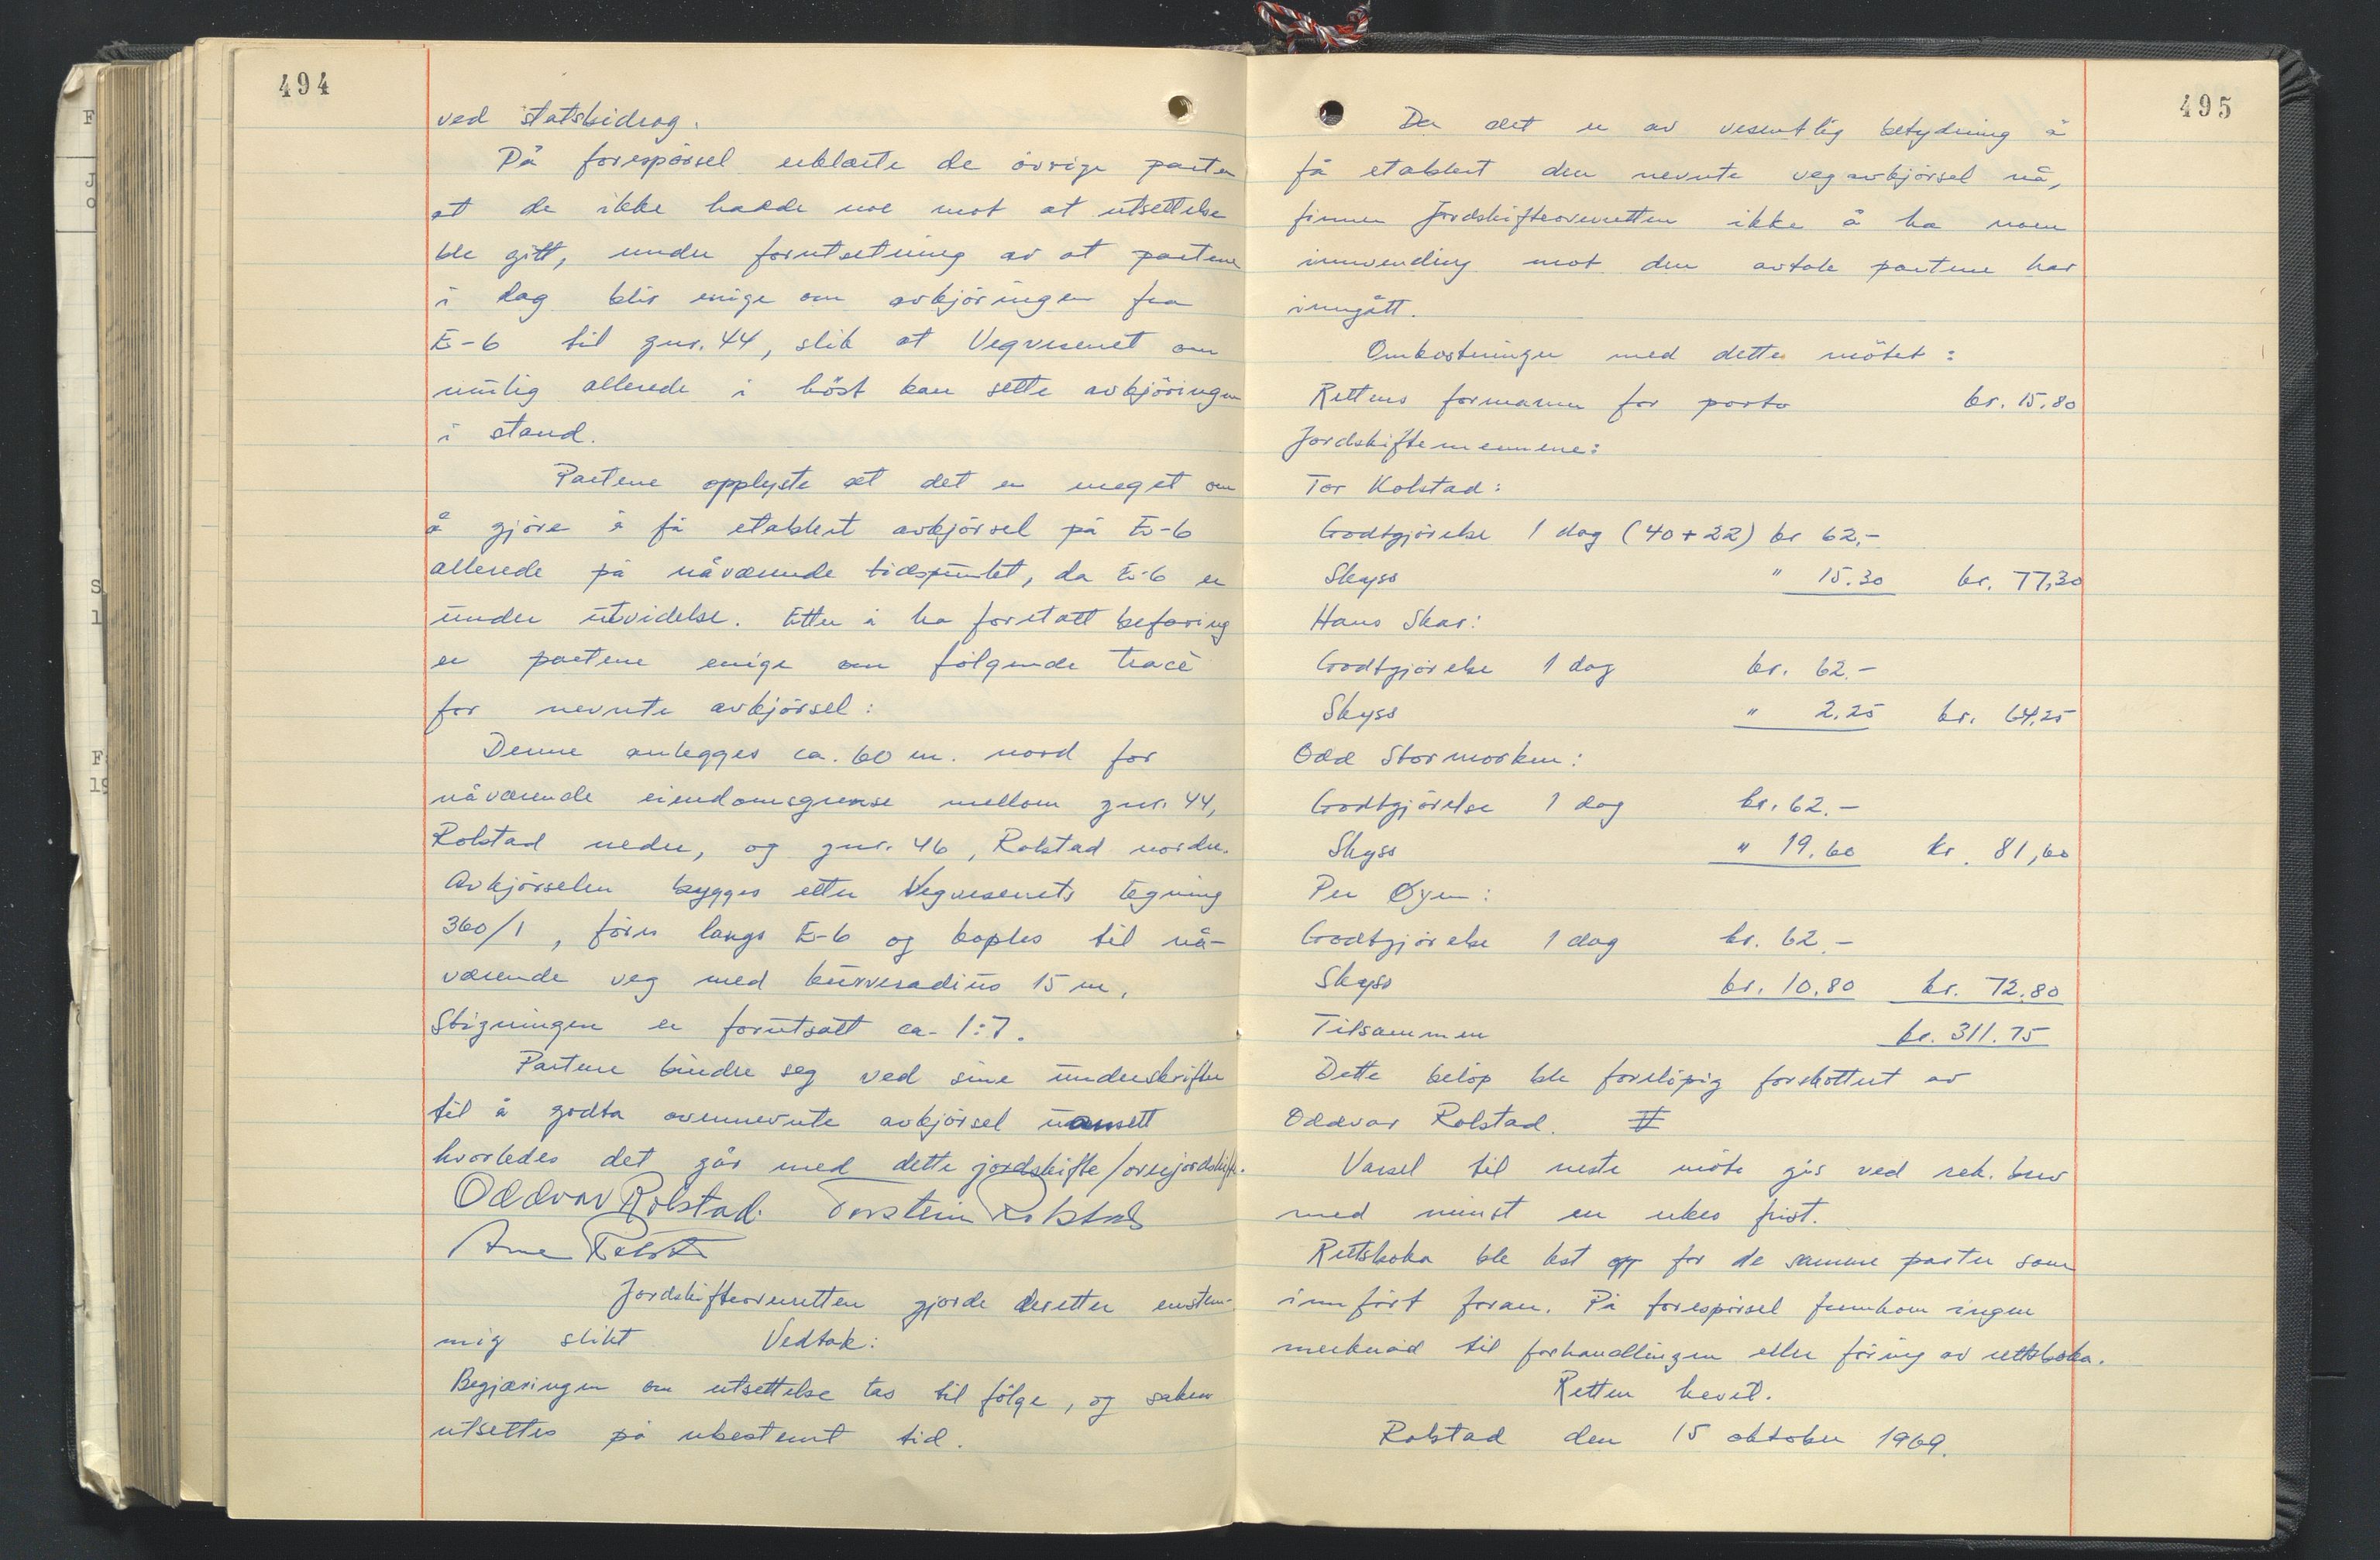 494
ved statsbidrag.
På forespörsel erklærte de övrige parter
at de ikke hadde noe mot at utsettelse
ble gitt, under forutsetning av at partene
i dag blir enige om avkjöringen fra
E-6 til gnr. 44, slik at Vegvesenet om
mulig allerede i höst kan sette avkjöringen
i stand.
Partene opplyste at det er meget om
å gjöre å få etablert avkjörsel på E-6
allerede på nåværende tidspunktet, da E-6 er
under utvidelse. Etter å ha foretatt befaring
er partene enige om fölgende tracè
for nevnte avkjörsel:
Denne anlegges ca. 60 m. nord for
nåværende eiendomsgrense mellom gnr. 44,
Rolstad nedre, og gnr. 46, Rolstad nordre.
Avkjörselen bygges etter Vegvesenets tegning
360/1, föres langs E-6 og koples til nå-
værende veg med kurveradius 15 m.
Stigningen er forutsatt ca. 1:7.
Partene binder seg ved sine underskrifter
til å godta ovennevnte avkjörsel uansett
hvorledes det går med dette jordskifte/overjordskifte.
Oddvar Rolstad. Torstein Rolstad
Arne Rolst
Jordskifteoverretten gjorde deretter enstem-
mig slikt Vedtak:
Begjæringen om utsettelse tas til fölge, og saken
utsettes på ubestemt tid.
495
Da det er av vesentlig betydning å
få etablert den nevnte vegavkjörsel nå,
finner Jordskifteoverretten ikke å ha noen
innvending mot den avtale partene har
inngått.
Omkostninger med dette mötet:
Rettens formann for porto kr. 15.80
Jordskiftemennene:
Tor Kolstad:
Godtgjörelse 1 dag (40+22) kr 62,-
Skyss " 15.30 kr. 77,30
Hans Skar:
Godtgjörelse 1 dag kr. 62.-
Skyss " 2.25 kr. 64,25
Odd Stormorken:
Godtgjörelse 1 dag kr. 62.-
Skyss " 19.60 kr. 81,60
Per Øyen:
Godtgjörelse 1 dag kr. 62.-
Skyss kr. 10.80 kr. 72.80
Tilsammen kr. 311.75
Dette belöp ble forelöpig forskottert av
Oddvar Rolstad.
Varsel til neste möte gis ved rek. brev
med minst en ukes frist.
Rettsboka ble lest opp for de samme parter som
innfört foran. På forespörsel framkom ingen
merknad til forhandlingen eller föring av rettsboka.
Retten hevet.
Rolstad den 15 oktober 1969.